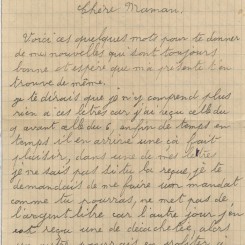 Chère Maman.
Voici ces quelques mots pour te donner
de mes nouvelles qui sont toujours
bonne et espère que ma présente t'en
trouve de même.
je te dirais que je n'y comprend plus
rien a ces lètres car j'ai reçu celle du
9 avant celle du 6, enfin de temps en
temps il en arrive une ça fait
plaisir, dans une de mes lètres
je ne sais pas si tu la reçu, je te
demandais de me faire un mandat
comme tu pourras, ne met pas de
l'argent libre car l'autre jour j'en
reçu une de deuchetée, alors